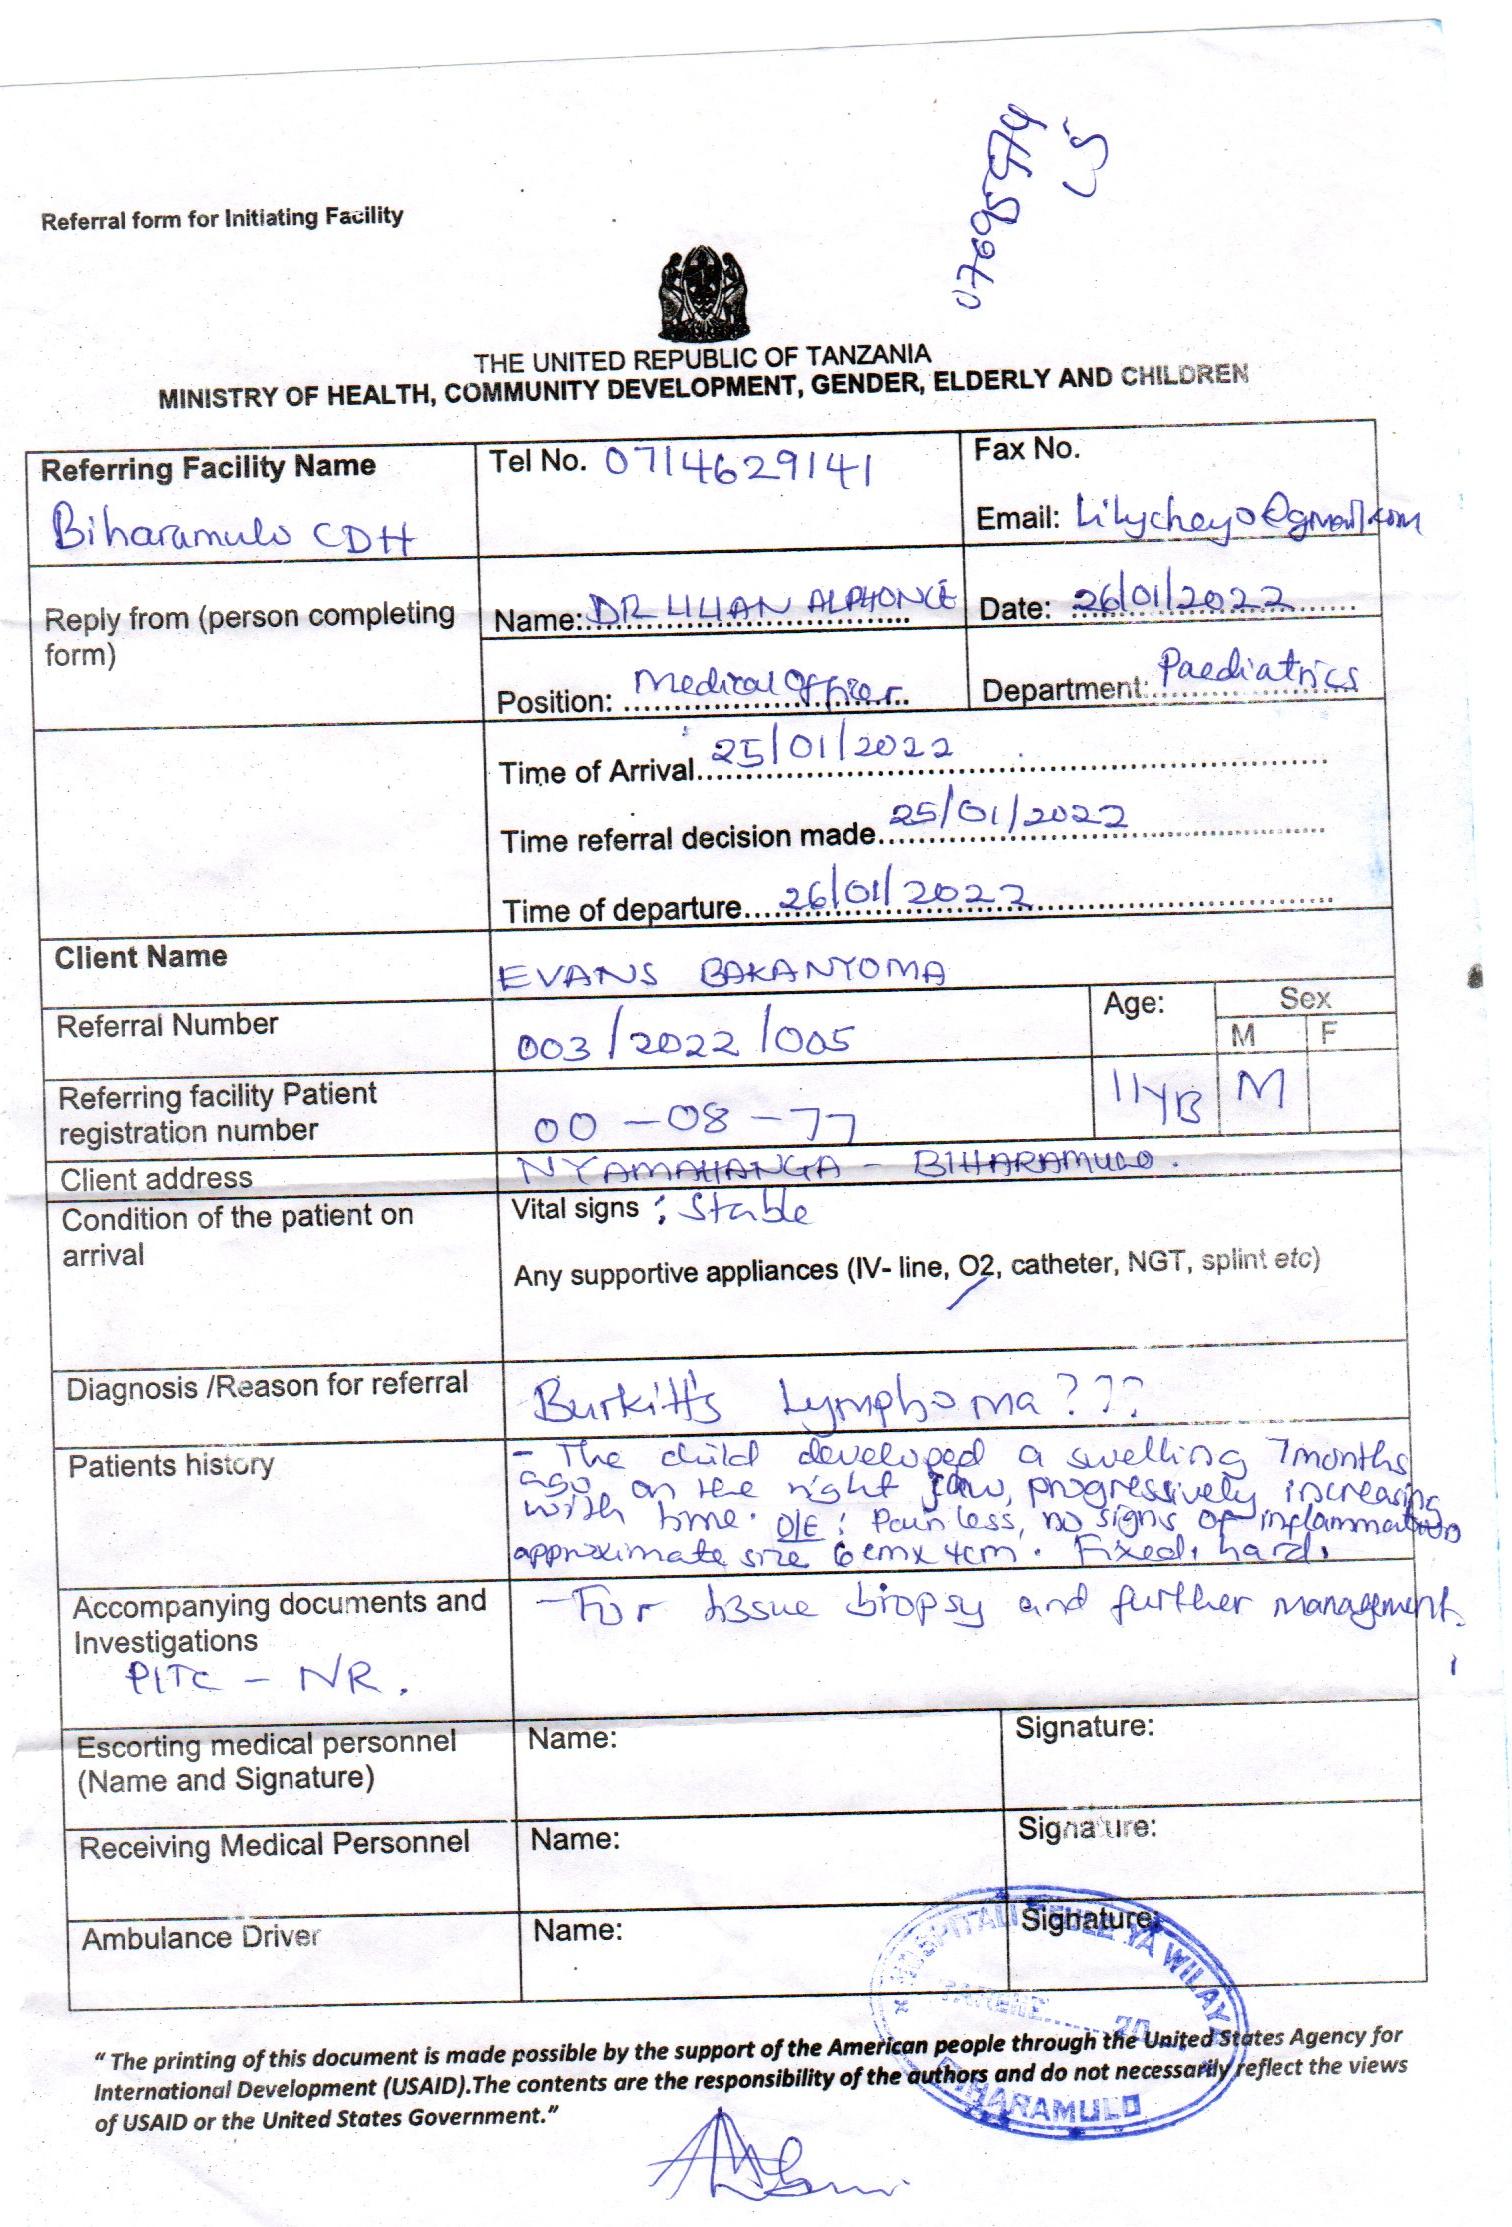 Referral form for Initiating Facility
THE UNITED REPUBLIC OF TANZANIA
MINISTRY OF HEALTH, COMMUNITY DEVELOPMENT, GENDER, ELDERLY AND CHILDREN
Referring Facility Name
Biharamulo CDH
Tel No. 0714629141
Fax No.
Email: lilycheyo@gmail.com
Reply from (person completing
form)
Name: DR LILIAN ALPHONCE
Date: 26/01/2022
Position: Medical Officer
Department: Paediatrics
Time of Arrival 25/01/2022
Time referral decision made 25/01/2022
Time of departure 26/01/2022
Client Name
EVANS BAKANYOMA
Referral Number
003/2022/005
Age:
Sex
M F
Referring facility Patient
registration number
00-08-77
M
Client address
NYAMAHANGA - BIHARAMULO.
Condition of the patient on
arrival
Vital signs : Stable
Any supportive appliances (IV- line, O2, catheter, NGT, splint etc)
Diagnosis /Reason for referral
Burkitt's Lymphoma???
Patients history
- The child developed a swelling 7months
ago, on the right jaw, progressively increasing
with time. O/E: Painless, no signs of inflammation
approximate size 6cmx 4cm. Fixed, hard.
Accompanying documents and
Investigations
PITC - NR.
- For tissue biopsy and further management.
Escorting medical personnel
(Name and Signature)
Name:
Signature:
Receiving Medical Personnel
Name:
Signature:
Ambulance Driver
Name:
Signature:
HOSPITALI TEULE YA WILAYA
TAREHE......20
BIHARAMULO
“ The printing of this document is made possible by the support of the American people through the United States Agency for
International Development (USAID).The contents are the responsibility of the authors and do not necessarily reflect the views
of USAID or the United States Government.”